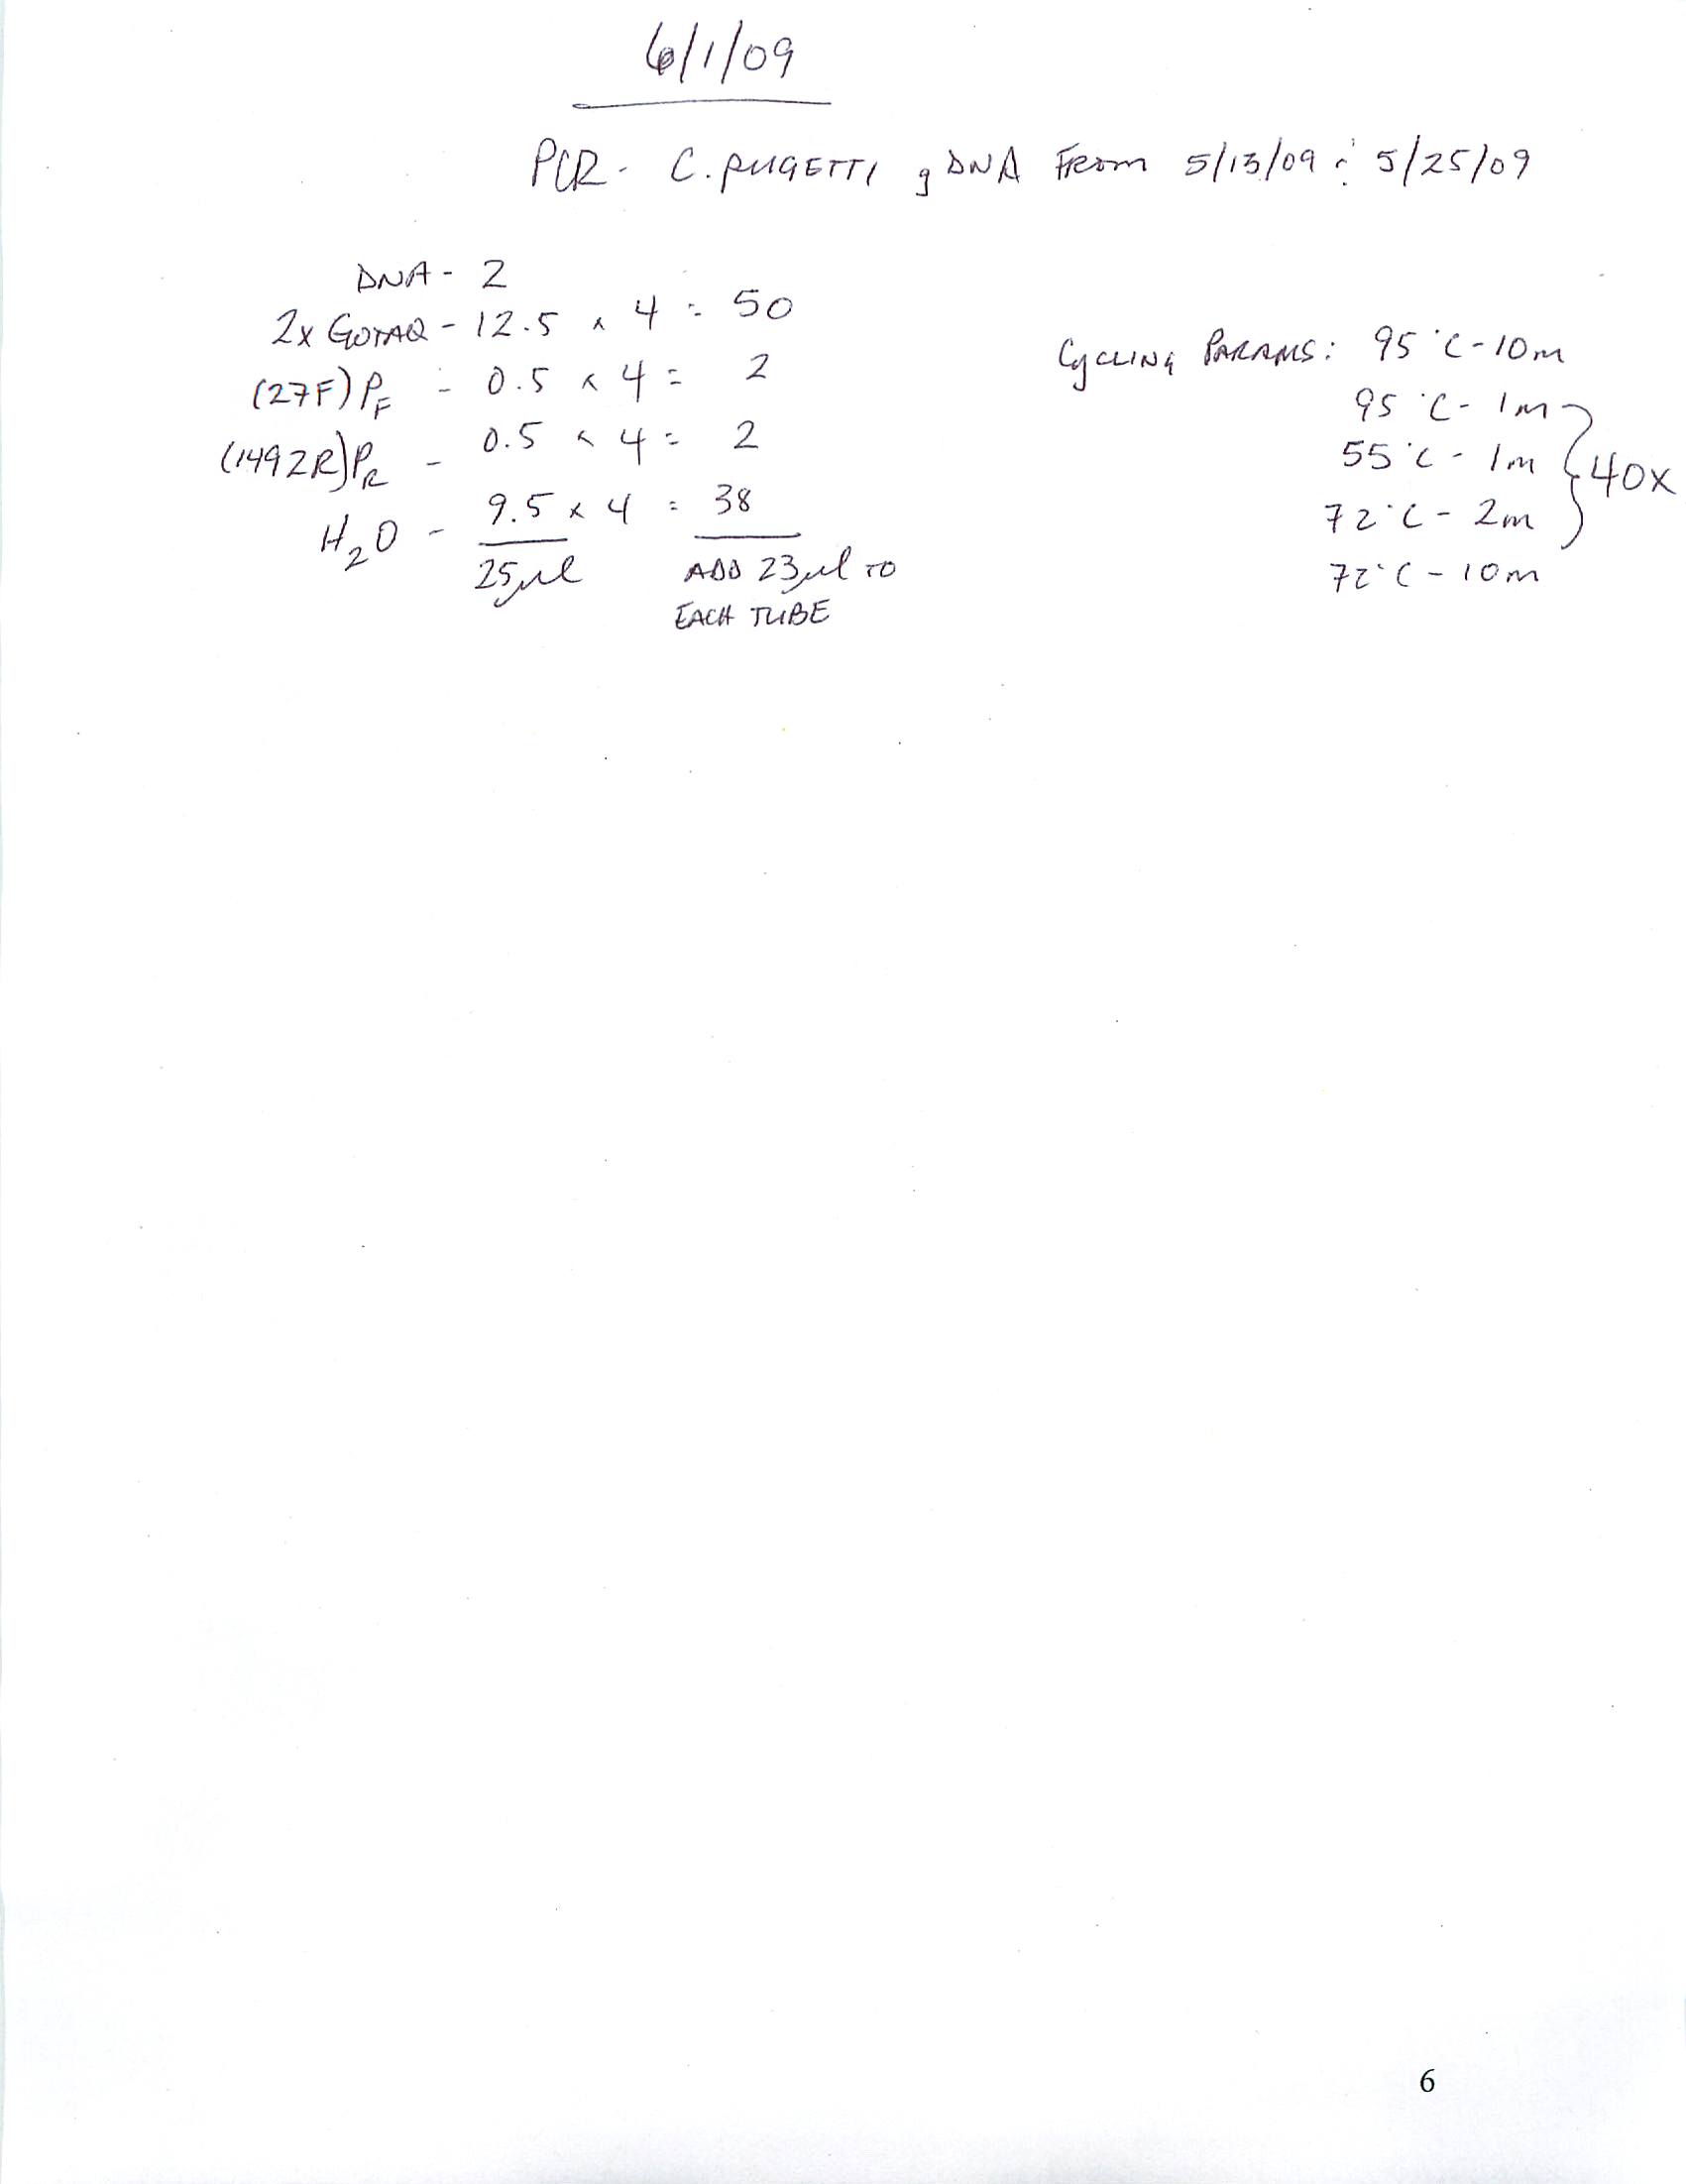 6/1/09
PCR - C. PUGETTI gDNA FROM 5/13/09 & 5/25/09
DNA - 2
2x GOTAQ - 12.5 x 4 = 50
(27F) PF - 0.5 x 4 = 2
(1492R) PR - 0.5 x 4 = 2
H2O - 9.5 x 4 = 38
25µl
ADD 23µl TO
EACH TUBE
CYCLING PARAMS: 95°C - 10m
95°C - 1m
55°C - 1m
72°C - 2m
} 40x
72°C - 10m
6